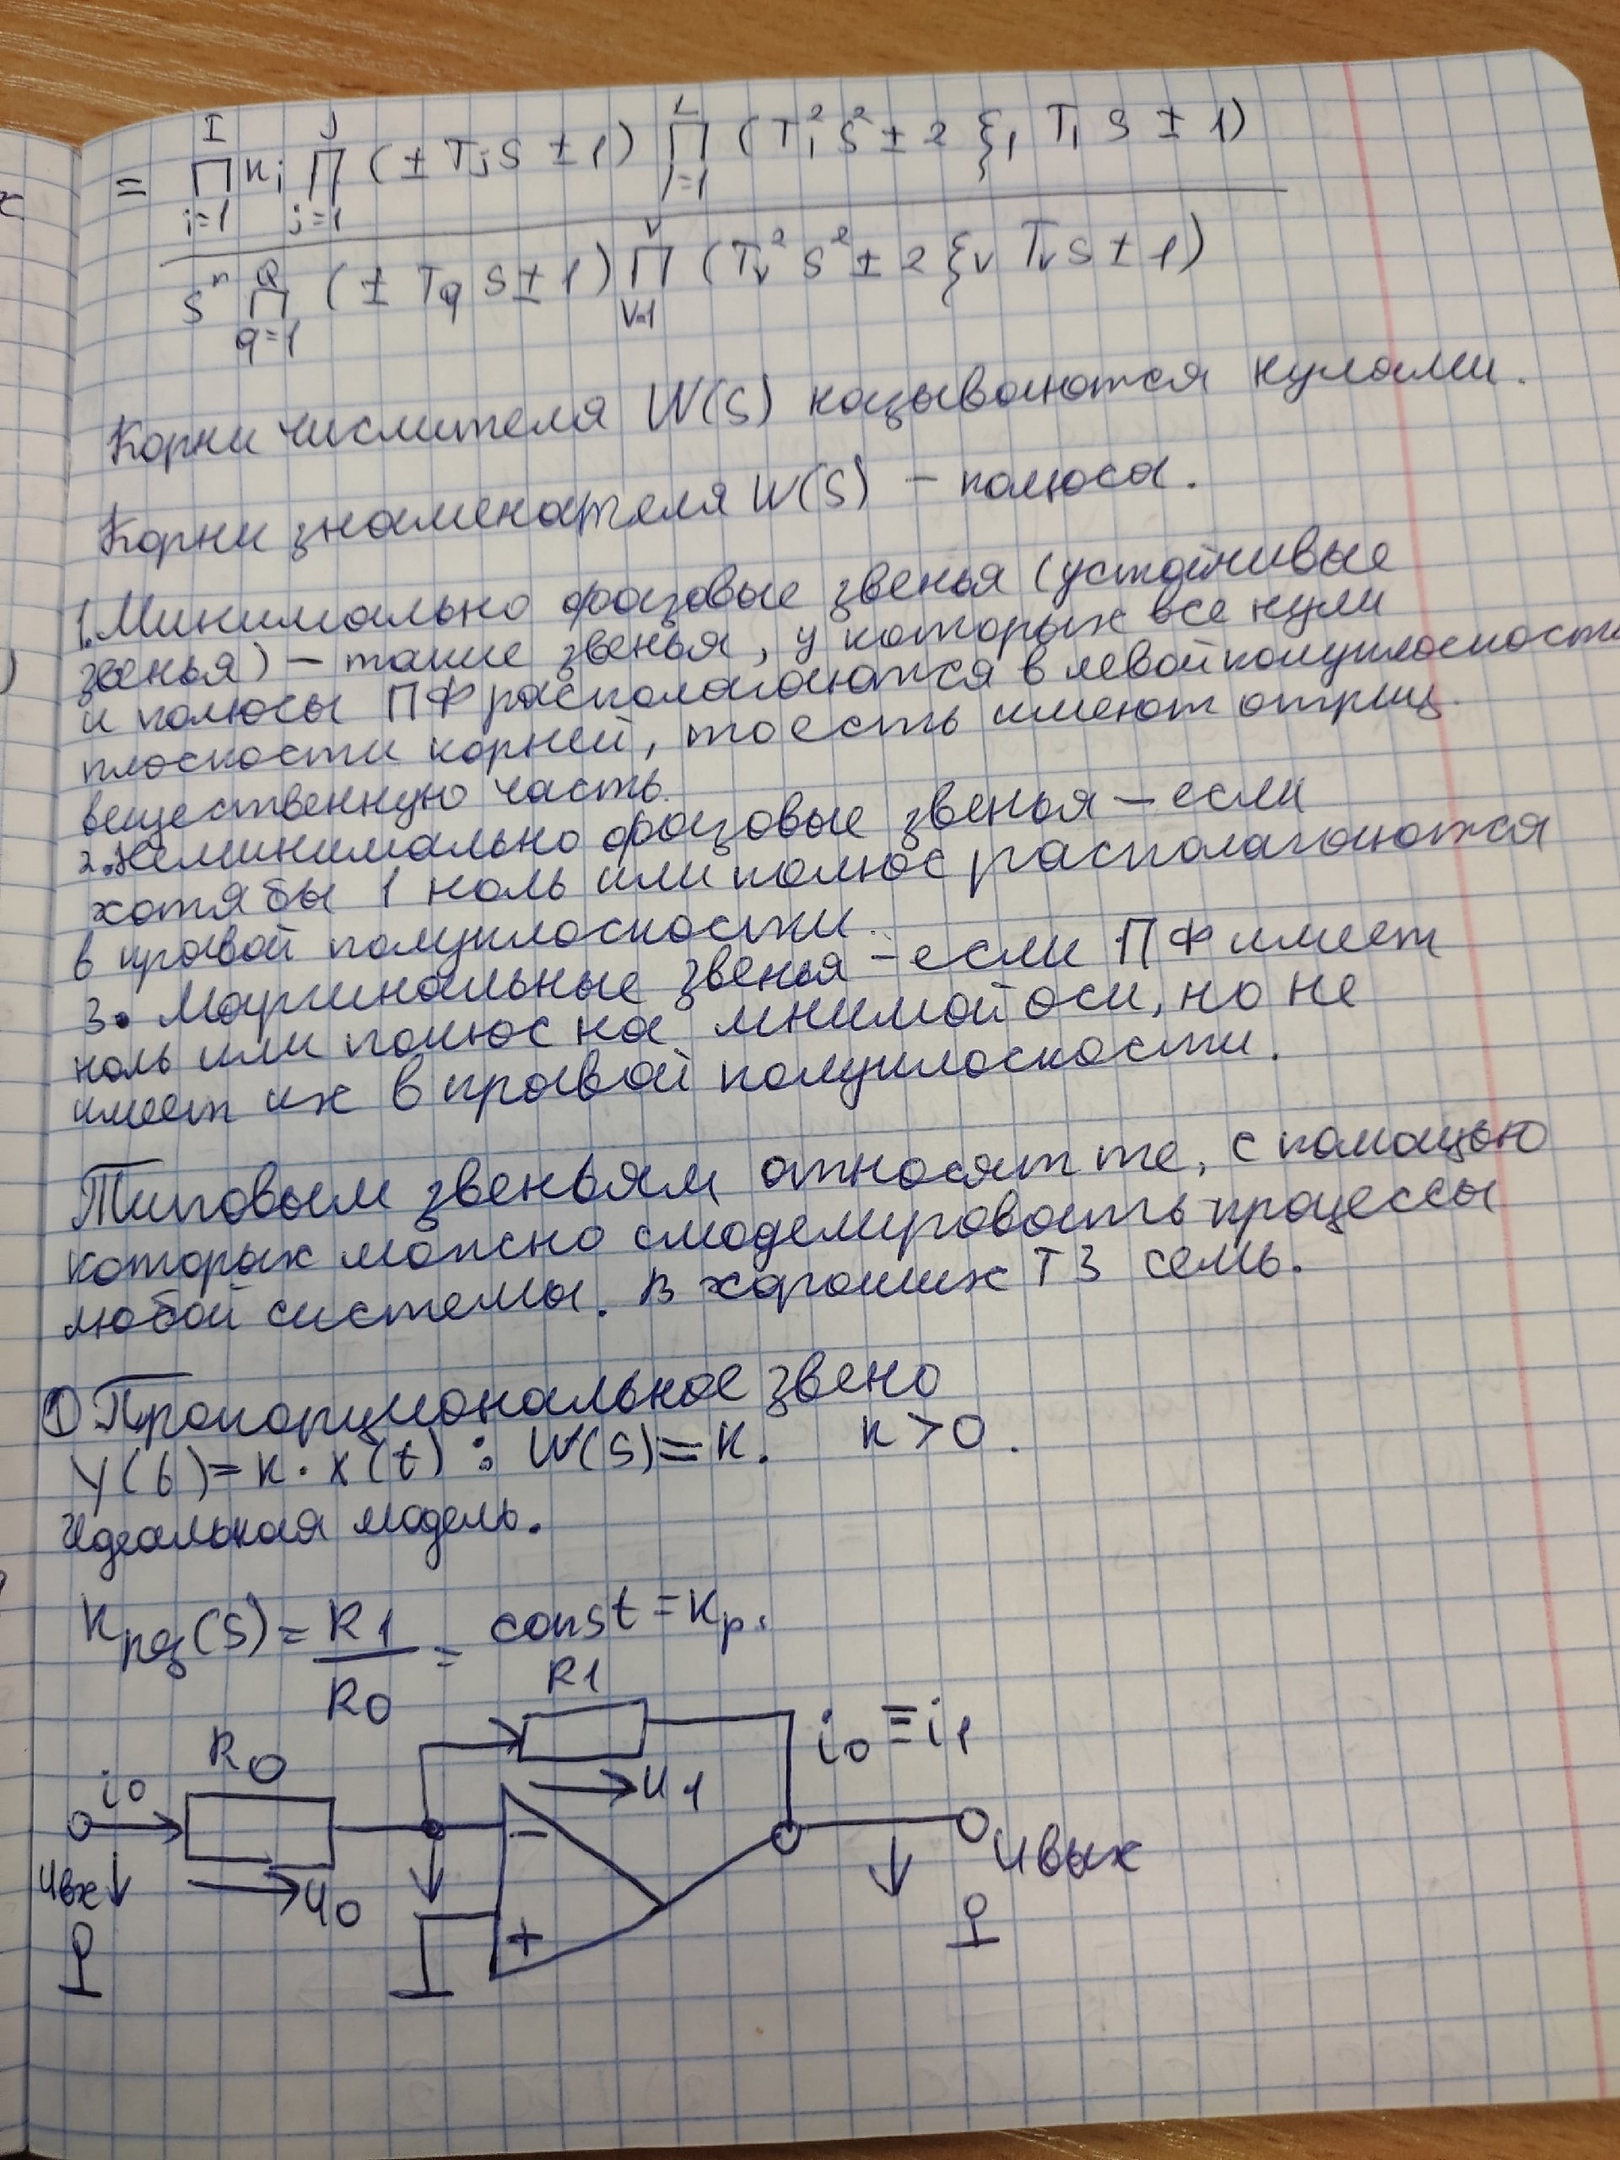 = I ∏ i=1 кi J ∏ j=1 (± Tjs ± 1) L ∏ l=1 (Tl² s² ± 2 ξl Tl s ± 1)
sⁿ Q ∏ q=1 (± Tq s ± 1) V ∏ v=1 (Tv² s² ± 2 ξv Tv s ± 1)
Корни числителя W(S) называются нулями.
Корни знаменателя W(S) – полюса.
1. Минимально фазовые звенья (устойчивые
звенья) – такие звенья, у которых все нули
и полюсы ПФ располагаются в левой полуплоскости
плоскости корней, то есть имеют отриц.
вещественную часть.
2. Неминимально фазовые звенья – если
хотя бы 1 ноль или полюс располагаются
в правой полуплоскости.
3. Маргинальные звенья – если ПФ имеет
ноль или полюс на мнимой оси, но не
имеет их в правой полуплоскости.
Типовым звеньям относят те, с помощью
которых можно смоделировать процессы
любой системы. В хороших ТЗ семь.
① Пропорциональное звено
Y(t) = к · x(t) : W(S) = к. к > 0.
Идеальная модель.
Kрег(S) = R1 / R0 = const = Kp.
R1
R0
i0 = i1
i0
u1
−
uвых
uвх
u0
+